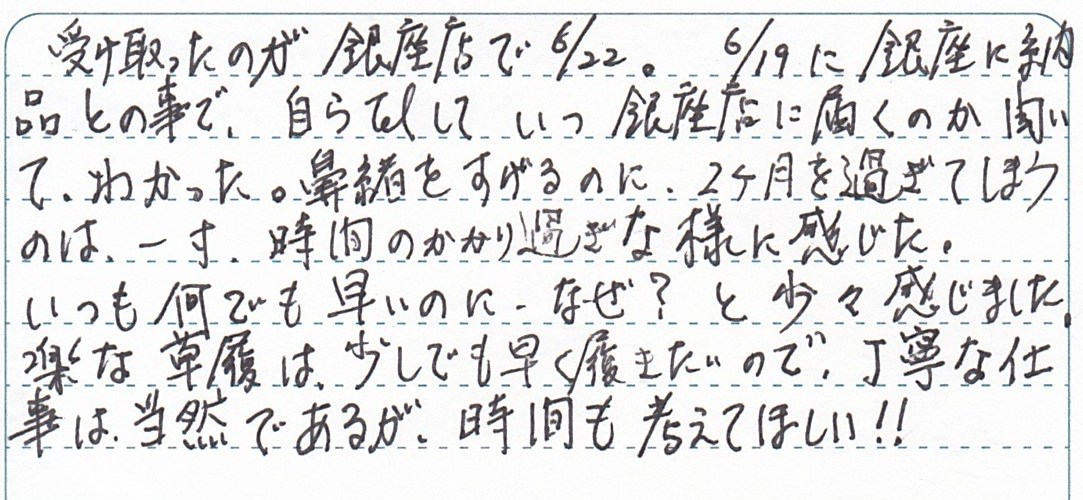 受け取ったのが銀座店で6/22。 6/19に銀座に納
品との事で、自らTelして いつ銀座店に届くのか聞い
て、わかった。鼻緒をすげるのに、2ケ月を過ぎてしまう
のは、一寸、時間のかかり過ぎな様に感じた。
いつも何でも早いのに、なぜ? と少々感じました。
楽な草履は、少しでも早く履きたいので、丁寧な仕
事は、当然であるが、時間も考えてほしい!!